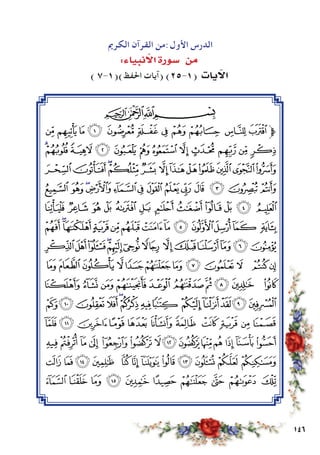 الدرس الأول :من القرآن الكريم
من سورة الأنبياء:
الآيات (١-٢٥) (آيات الحفظ)(١-٧)
بِسْمِ اللَّهِ الرَّحْمَٰنِ الرَّحِيمِ
﴿ ٱقْتَرَبَ لِلنَّاسِ حِسَابُهُمْ وَهُمْ فِى غَفْلَةٍ مُّعْرِضُونَ ١ مَا يَأْتِيهِم مِّن
ذِكْرٍ مِّن رَّبِّهِم مُّحْدَثٍ إِلَّا ٱسْتَمَعُوهُ وَهُمْ يَلْعَبُونَ ٢ لَاهِيَةً قُلُوبُهُمْ ۗ
وَأَسَرُّوا۟ ٱلنَّجْوَى ٱلَّذِينَ ظَلَمُوا۟ هَلْ هَٰذَآ إِلَّا بَشَرٌ مِّثْلُكُمْ ۖ أَفَتَأْتُونَ ٱلسِّحْرَ
وَأَنتُمْ تُبْصِرُونَ ٣ قَالَ رَبِّى يَعْلَمُ ٱلْقَوْلَ فِى ٱلسَّمَآءِ وَٱلْأَرْضِ ۖ وَهُوَ ٱلسَّمِيعُ
ٱلْعَلِيمُ ٤ بَلْ قَالُوٓا۟ أَضْغَٰثُ أَحْلَٰمٍۭ بَلِ ٱفْتَرَىٰهُ بَلْ هُوَ شَاعِرٌ فَلْيَأْتِنَا
بِـَٔايَةٍ كَمَآ أُرْسِلَ ٱلْأَوَّلُونَ ٥ مَآ ءَامَنَتْ قَبْلَهُم مِّن قَرْيَةٍ أَهْلَكْنَٰهَآ ۖ أَفَهُمْ
يُؤْمِنُونَ ٦ وَمَآ أَرْسَلْنَا قَبْلَكَ إِلَّا رِجَالًا نُّوحِىٓ إِلَيْهِمْ ۖ فَسْـَٔلُوٓا۟ أَهْلَ ٱلذِّكْرِ
إِن كُنتُمْ لَا تَعْلَمُونَ ٧ وَمَا جَعَلْنَٰهُمْ جَسَدًا لَّا يَأْكُلُونَ ٱلطَّعَامَ وَمَا
كَانُوا۟ خَٰلِدِينَ ٨ ثُمَّ صَدَقْنَٰهُمُ ٱلْوَعْدَ فَأَنجَيْنَٰهُمْ وَمَن نَّشَآءُ وَأَهْلَكْنَا
ٱلْمُسْرِفِينَ ٩ لَقَدْ أَنزَلْنَآ إِلَيْكُمْ كِتَٰبًا فِيهِ ذِكْرُكُمْ ۖ أَفَلَا تَعْقِلُونَ ١٠ وَكَمْ
قَصَمْنَا مِن قَرْيَةٍ كَانَتْ ظَالِمَةً وَأَنشَأْنَا بَعْدَهَا قَوْمًا ءَاخَرِينَ ١١ فَلَمَّآ
أَحَسُّوا۟ بَأْسَنَآ إِذَا هُم مِّنْهَا يَرْكُضُونَ ١٢ لَا تَرْكُضُوا۟ وَٱرْجِعُوٓا۟ إِلَىٰ مَآ أُتْرِفْتُمْ فِيهِ
وَمَسَٰكِنِكُمْ لَعَلَّكُمْ تُسْـَٔلُونَ ١٣ قَالُوا۟ يَٰوَيْلَنَآ إِنَّا كُنَّا ظَٰلِمِينَ ١٤ فَمَا زَالَت
تِّلْكَ دَعْوَىٰهُمْ حَتَّىٰ جَعَلْنَٰهُمْ حَصِيدًا خَٰمِدِينَ ١٥ وَمَا خَلَقْنَا ٱلسَّمَآءَ
١٤٦